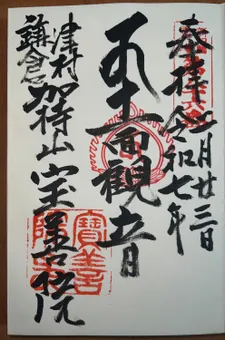 奉拝
令和七年
月廿三日
十一面観音
津村
鎌倉
加持山宝善院
寶善